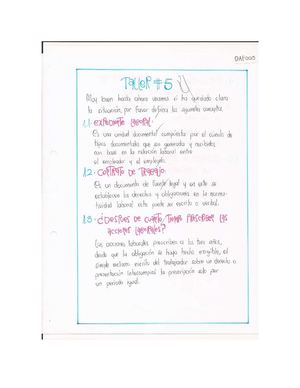 TALLER #5
Muy bien hasta ahora veamos si ha quedado clara
la situación, por favor defina los siguientes conceptos
1.1. EXPEDIENTE LABORAL:
Es una unidad documental compuesta por el cúmulo de
tipos documentales que se generados y recibidos
con base en la relación laboral entre
el empleador y el empleado.
1.2. CONTRATO DE TRABAJO
Es un documento de fuente legal y en este se
establecen los derechos y obligaciones en la norma-
tividad laboral este puede ser escrito o verbal.
1.3. ¿DESPUES DE CUANTO TIEMPO PRESCRIBEN LAS
ACCIONES LABORALES?
Las acciones laborales prescriben a los tres años,
desde que la obligación se haya hecho exigible, el
simple reclamo escrito del trabajador sobre un derecho o
prestación interrumpirá la prescripción solo por
un periodo igual.